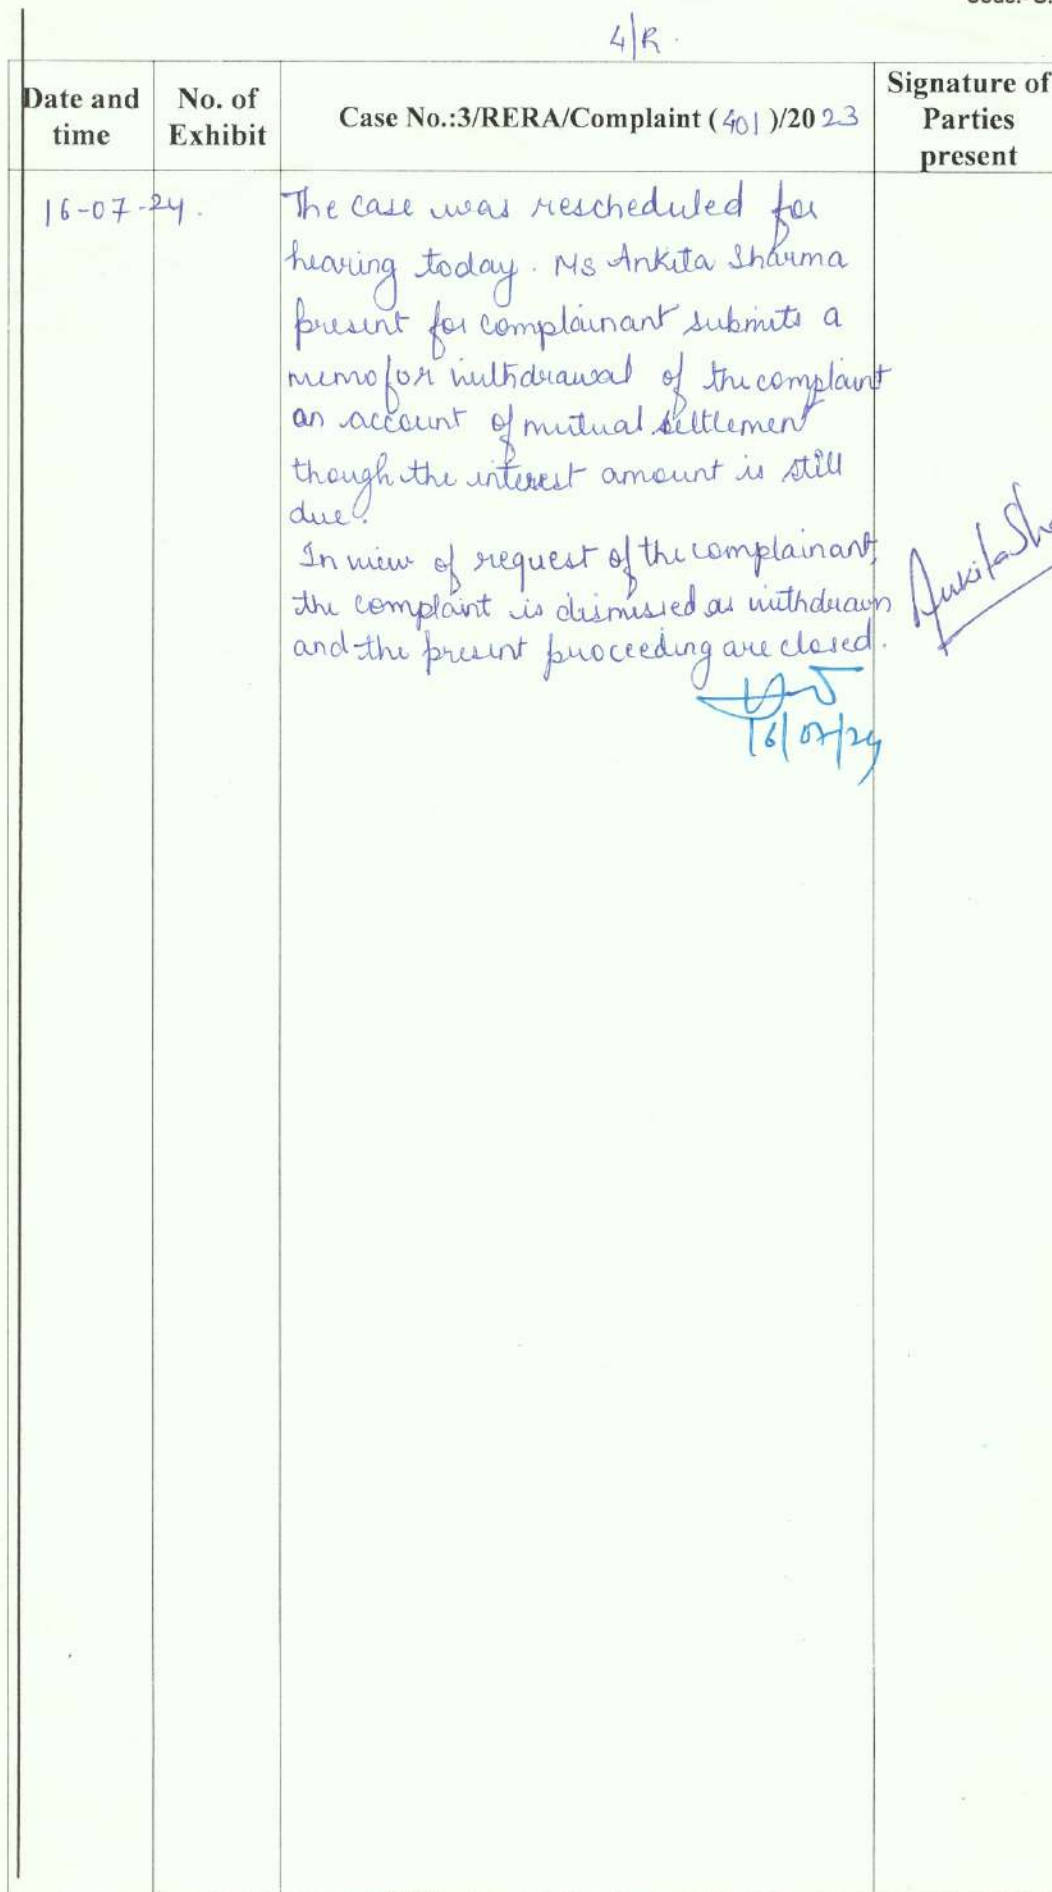 4/R.
Date and time
No. of Exhibit
Case No.:3/RERA/Complaint (401)/2023
Signature of Parties present
16-07-24.
The case was rescheduled for
hearing today. Ms Ankita Sharma
present for complainant submits a
memo for withdrawal of the complaint
on account of mutual settlement
though the interest amount is still
due.
In view of request of the complainant,
the complaint is dismissed as withdrawn
and the present proceeding are closed.
Ankita Sh
16/07/24